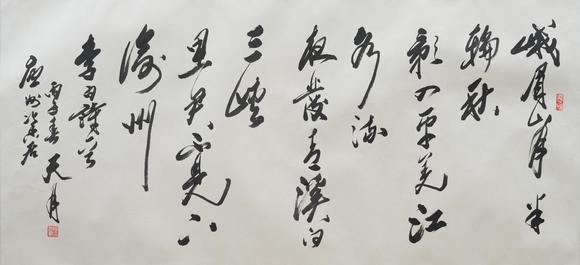 峨眉山月半
輪秋
影入平羌江
水流
夜發清溪向
三峽
思君不見下
渝州
李白詩一首
丙子春天月